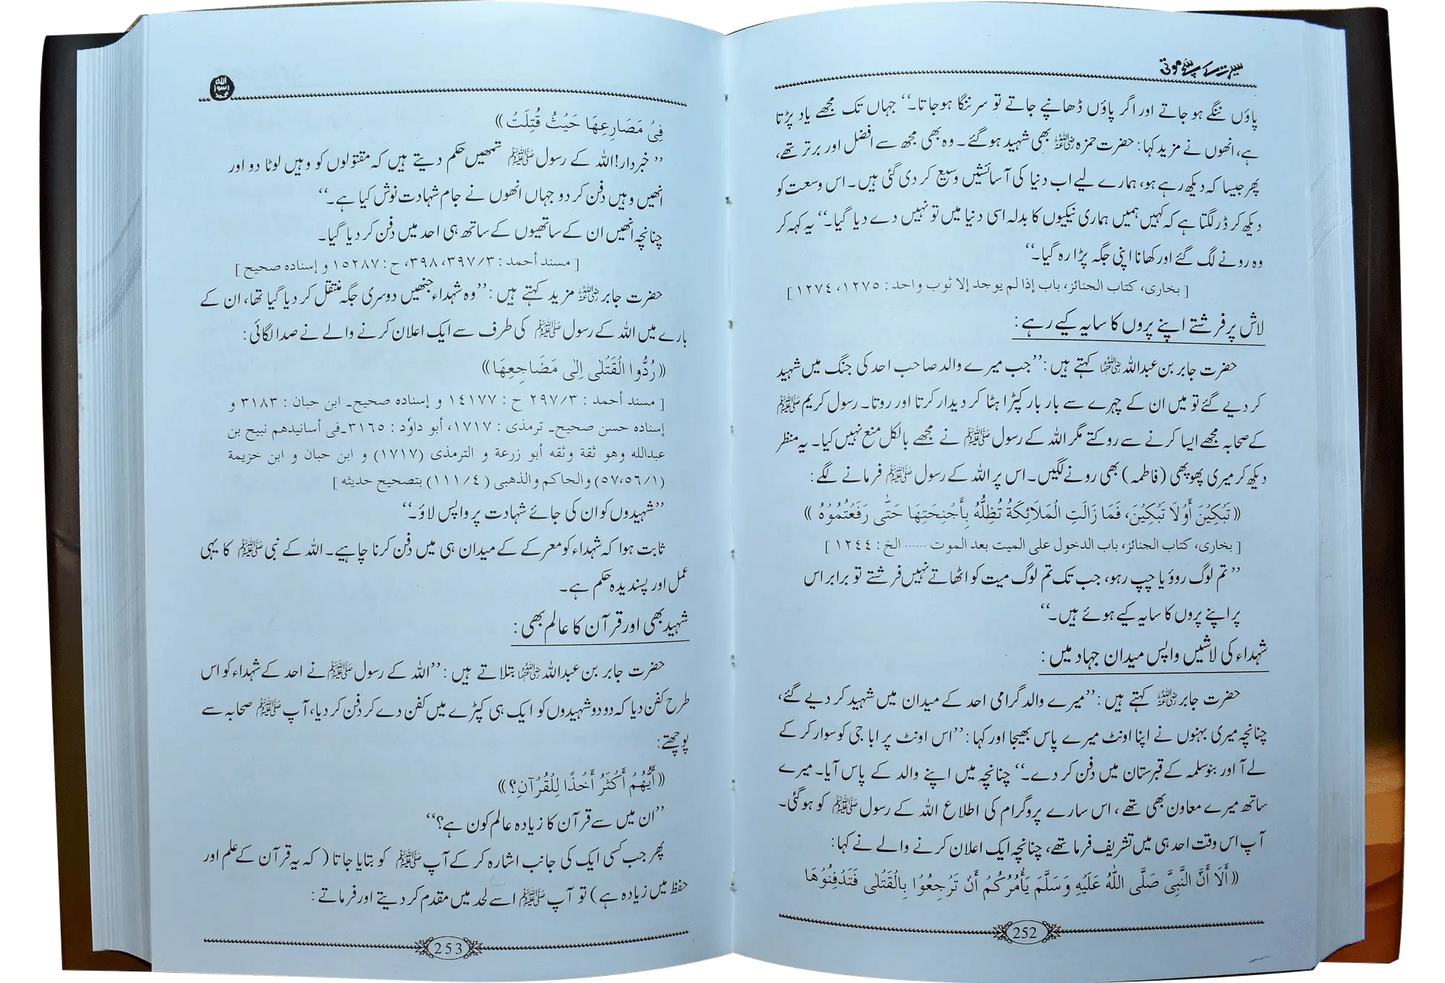 پاؤں ننگے ہو جاتے اور اگر پاؤں ڈھانپے جاتے تو سر ننگا ہوجاتا۔‘‘ جہاں تک مجھے یاد پڑتا
ہے، انھوں نے مزید کہا: حضرت حمزہ رضی اللہ عنہ بھی شہید ہوگئے۔ وہ بھی مجھ سے افضل اور برتر تھے،
پھر جیسا کہ دیکھ رہے ہو، ہمارے لیے اب دنیا کی آسائشیں وسیع کر دی گئی ہیں۔ اس وسعت کو
دیکھ کر ڈر لگتا ہے کہ کہیں ہمیں ہماری نیکیوں کا بدلہ اسی دنیا میں تو نہیں دے دیا گیا۔‘‘ یہ کہہ کر
وہ رونے لگ گئے اور کھانا اپنی جگہ پڑا رہ گیا۔‘‘
[ بخاری، کتاب الجنائز، باب إذا لم يوجد إلا ثوب واحد : ۱۲۷۵، ۱۲۷۴ ]
لاش پر فرشتے اپنے پروں کا سایہ کیے رہے:
حضرت جابر بن عبداللہ رضی اللہ عنہما کہتے ہیں: ’’جب میرے والد صاحب احد کی جنگ میں شہید
کر دیے گئے تو میں ان کے چہرے سے بار بار کپڑا ہٹا کر دیدار کرتا اور روتا۔ رسول کریم ﷺ
کے صحابہ مجھے ایسا کرنے سے روکتے مگر اللہ کے رسول ﷺ نے مجھے بالکل منع نہیں کیا۔ یہ منظر
دیکھ کر میری پھوپھی (فاطمہ) بھی رونے لگیں۔ اس پر اللہ کے رسول ﷺ فرمانے لگے:
« تَبْكِيْنَ أَوْ لَا تَبْكِيْنَ، فَمَا زَالَتِ الْمَلَائِكَةُ تُظِلُّهُ بِأَجْنِحَتِهَا حَتّٰى رَفَعْتُمُوْهُ »
[ بخاری، کتاب الجنائز، باب الدخول علی المیت بعد الموت ...... الخ : ۱۲۴۴ ]
’’تم لوگ روؤ یا چپ رہو، جب تک تم لوگ میت کو اٹھاتے نہیں فرشتے تو برابر اس
پر اپنے پروں کا سایہ کیے ہوئے ہیں۔‘‘
شہداء کی لاشیں واپس میدان جہاد میں:
حضرت جابر رضی اللہ عنہ کہتے ہیں: ’’میرے والد گرامی احد کے میدان میں شہید کر دیے گئے،
چنانچہ میری بہنوں نے اپنا اونٹ میرے پاس بھیجا اور کہا: ’’اس اونٹ پر ابا جی کو سوار کر کے
لے آ اور بنو سلمہ کے قبرستان میں دفن کر دے۔‘‘ چنانچہ میں اپنے والد کے پاس آیا۔ میرے
ساتھ میرے معاون بھی تھے، اس سارے پروگرام کی اطلاع اللہ کے رسول ﷺ کو ہوگئی۔
آپ اس وقت احد ہی میں تشریف فرما تھے، چنانچہ ایک اعلان کرنے والے نے کہا:
« أَلَا أَنَّ النَّبِيَّ صَلَّى اللّٰهُ عَلَيْهِ وَسَلَّمَ يَأْمُرُكُمْ أَنْ تَرْجِعُوْا بِالْقَتْلٰى فَتَدْفِنُوْهَا
252
الله رسول محمد
فِيْ مَصَارِعِهَا حَيْثُ قُتِلَتْ »
’’خبردار! اللہ کے رسول ﷺ تمھیں حکم دیتے ہیں کہ مقتولوں کو وہیں لوٹا دو اور
انھیں وہیں دفن کر دو جہاں انھوں نے جام شہادت نوش کیا ہے۔‘‘
چنانچہ انھیں ان کے ساتھیوں کے ساتھ ہی احد میں دفن کر دیا گیا۔
[ مسند أحمد : ۳/ ۳۹۷، ۳۹۸، ح : ۱۵۲۸۷ و إسناده صحيح ]
حضرت جابر رضی اللہ عنہ مزید کہتے ہیں: ’’وہ شہداء جنھیں دوسری جگہ منتقل کر دیا گیا تھا، ان کے
بارے میں اللہ کے رسول ﷺ کی طرف سے ایک اعلان کرنے والے نے صدا لگائی:
« رُدُّوا الْقَتْلٰى إِلٰى مَضَاجِعِهَا »
[ مسند أحمد : ۳/ ۲۹۷ ح : ۱۴۱۷۷ و إسناده صحيح۔ ابن حبان : ۳۱۸۳ و
إسناده حسن صحيح۔ ترمذی : ۱۷۱۷، أبو داؤد : ۳۱۶۵۔ فی أسانيدهم نبيح بن
عبدالله وهو ثقة وثقه أبو زرعة و الترمذی (۱۷۱۷) و ابن حبان و ابن خزيمة
(۱/ ۵۶، ۵۷) والحاكم والذهبی (۴/ ۱۱۱) بتصحيح حديثه ]
’’شہیدوں کو ان کی جائے شہادت پر واپس لاؤ۔‘‘
ثابت ہوا کہ شہداء کو معرکے کے میدان ہی میں دفن کرنا چاہیے۔ اللہ کے نبی ﷺ کا یہی
عمل اور پسندیدہ حکم ہے۔
شہید بھی اور قرآن کا عالم بھی:
حضرت جابر بن عبداللہ رضی اللہ عنہما بتلاتے ہیں: ’’اللہ کے رسول ﷺ نے احد کے شہداء کو اس
طرح کفن دیا کہ دو دو شہیدوں کو ایک ہی کپڑے میں کفن دے کر دفن کر دیا، آپ ﷺ صحابہ سے
پوچھتے:
« أَيُّهُمْ أَكْثَرُ أَخْذًا لِلْقُرْآنِ؟ »
’’ان میں سے قرآن کا زیادہ عالم کون ہے؟‘‘
پھر جب کسی ایک کی جانب اشارہ کر کے آپ ﷺ کو بتایا جاتا (کہ یہ قرآن کے علم اور
حفظ میں زیادہ ہے) تو آپ ﷺ اسے لحد میں مقدم کر دیتے اور فرماتے:
253